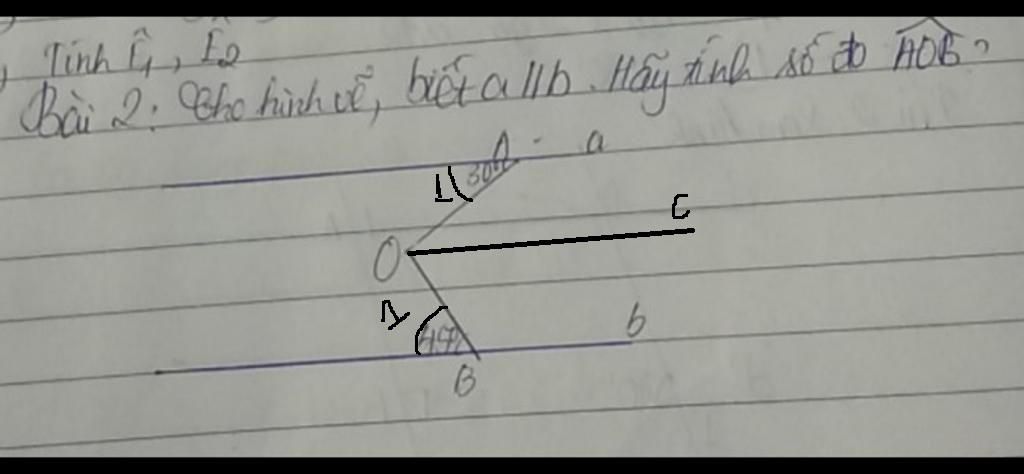 Tính Ê₁, Ê₂
Bài 2: Cho hình vẽ, biết a // b. Hãy tính số đo AOB?
A a
1 30°
c
O
1
45° b
B